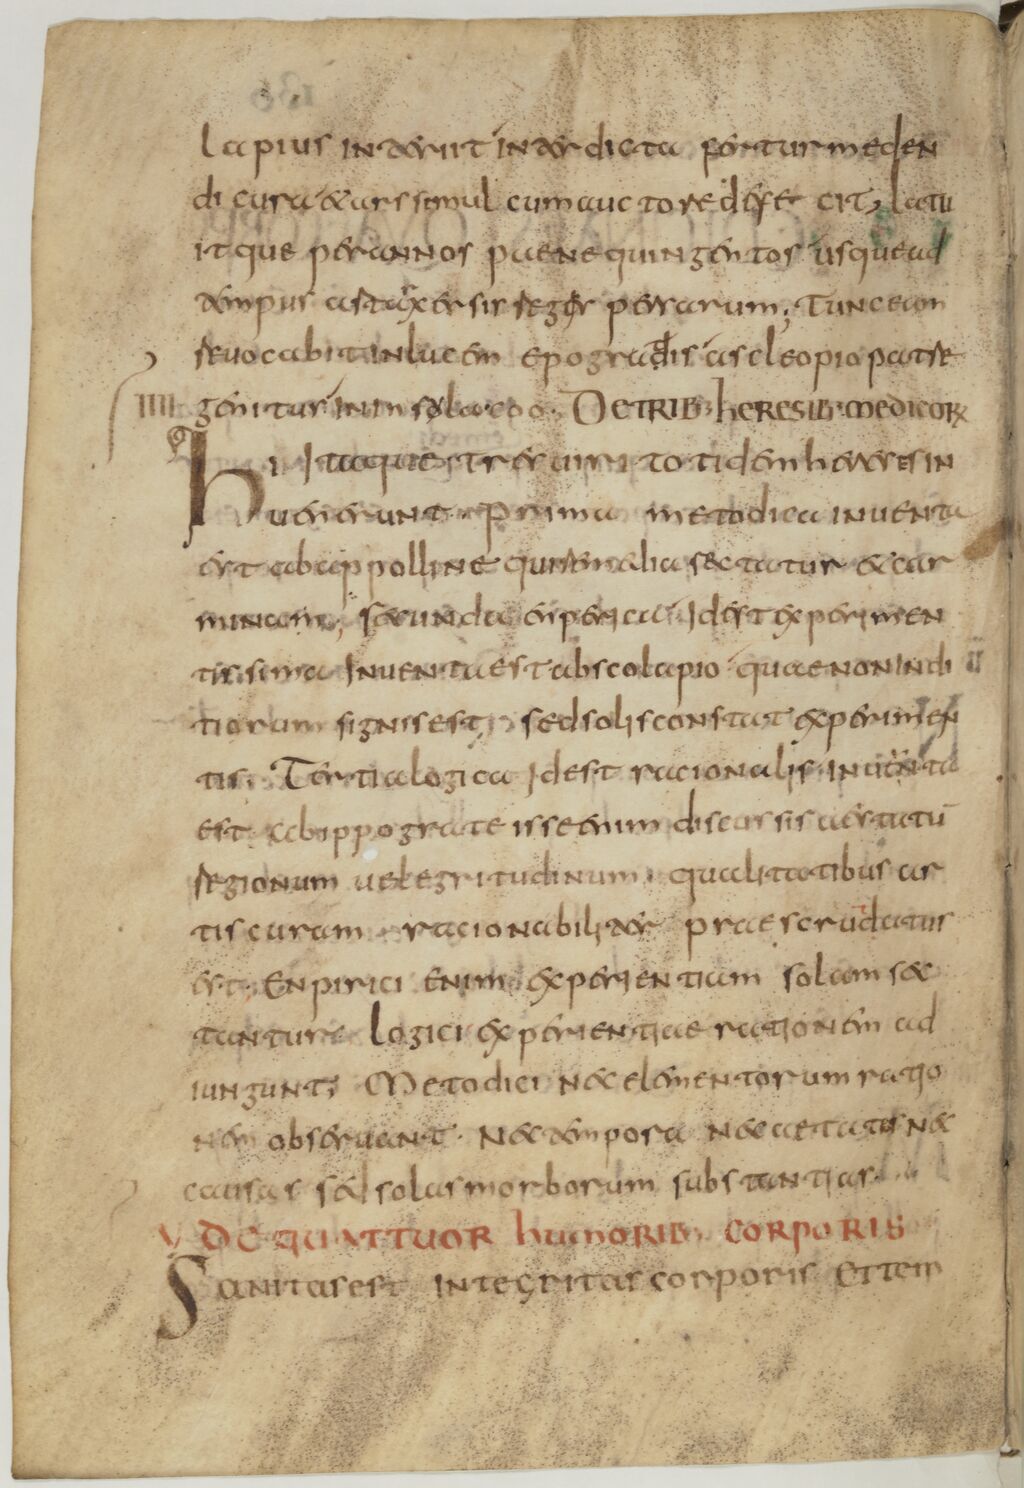 lapius interiit interdicta fertur meden
di cura & ars simul cum auctore defecit, latu
itque per annos paene quingentos usque ad
tempus artaxersis regis persarum; Tunc eam
revocabit in lucem epogradis ascleopio patre
IIII genitus in insola coo. DE TRIB heresib medicor
Hi Itaque tres viri totidem hereses in
venerunt. Prima metodica inventa
est ab appolline qui remedia sectatur & car
minam; secunda enperica Idest experimen
tissima Inventa est ab scolapio quae non indi
tiorum signis est, sed solis constat experimen
tis. Tertia logica Idest racionalis inventa
est ab ippograte isse enim discussis aetatū
regionum vel egritudinum qualitatibus ar
tis curam racionabiliter praescrudatus
est. Enpirici enim experientiam solam sec
tantur. Logici experientiae rationem ad
iungunt, Metodici nec elementorum ratio
nem observant. Nec tempora nec aetates nec
causas sed solas morborum substantias.
V DE QUATTUOR humorib CORPORIS
Sanitas est integritas corporis et tem